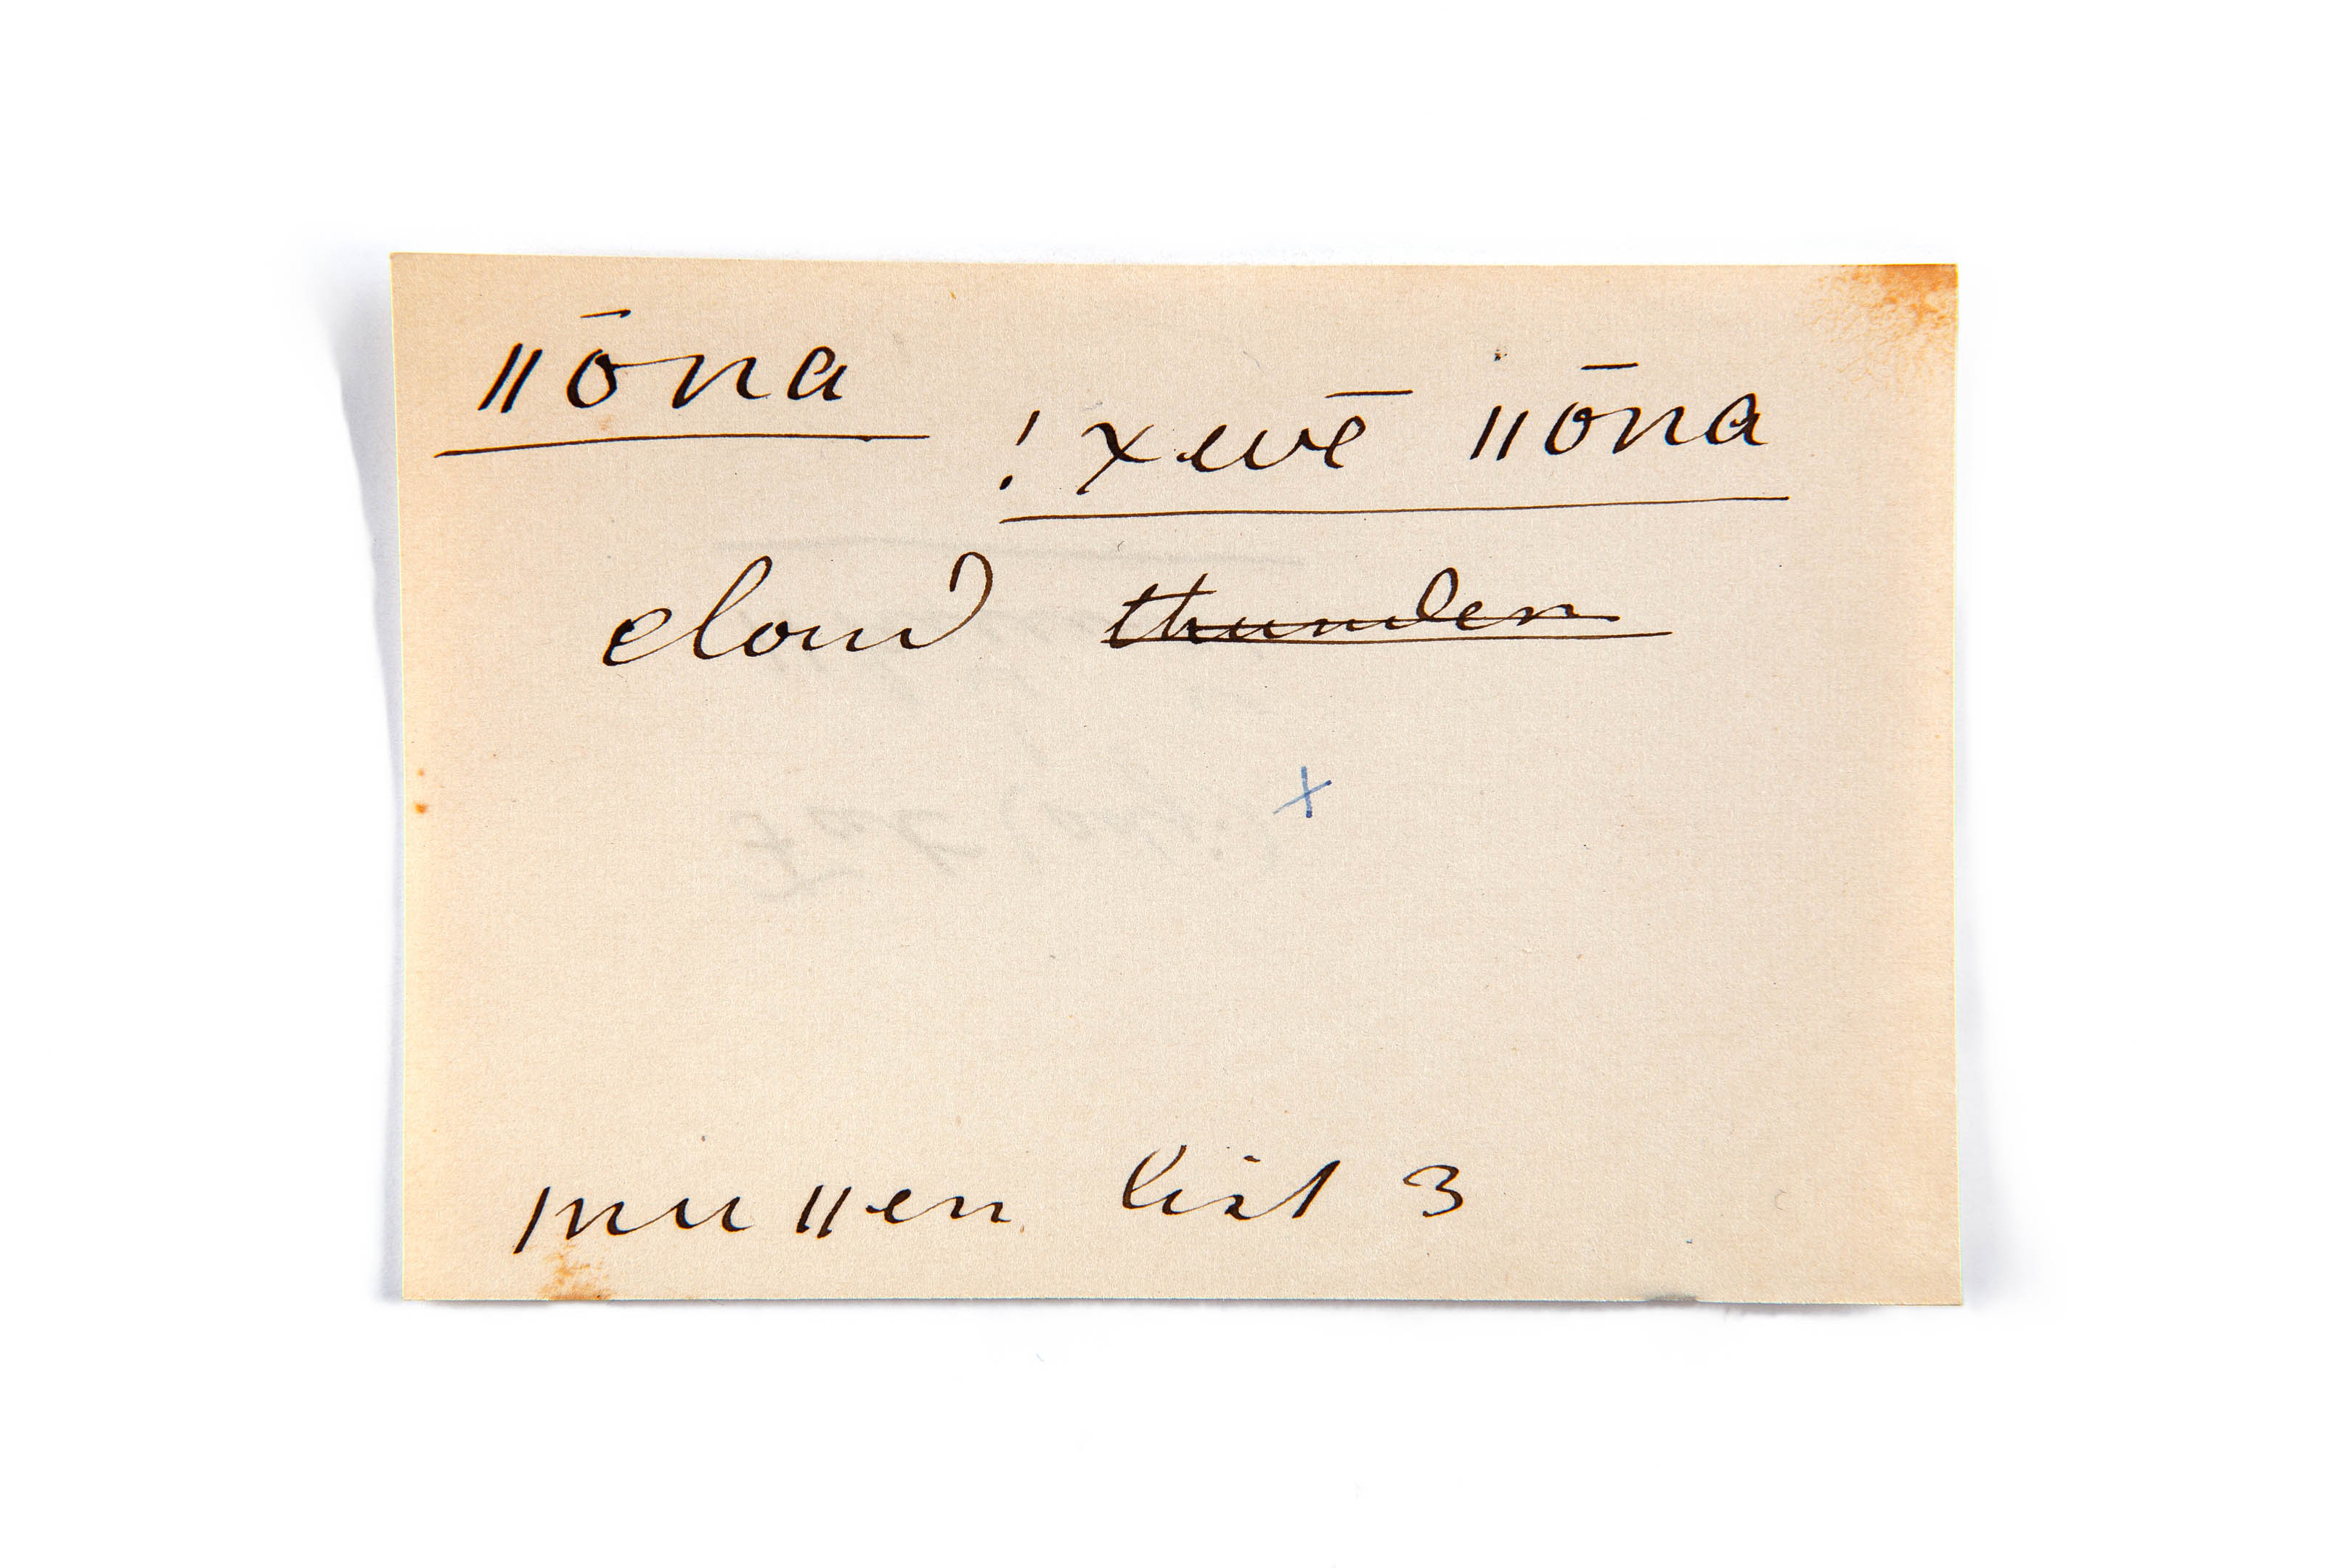 ǁōna
!xewē ǁōna
cloud thunder
ǀnu ǁen list 3